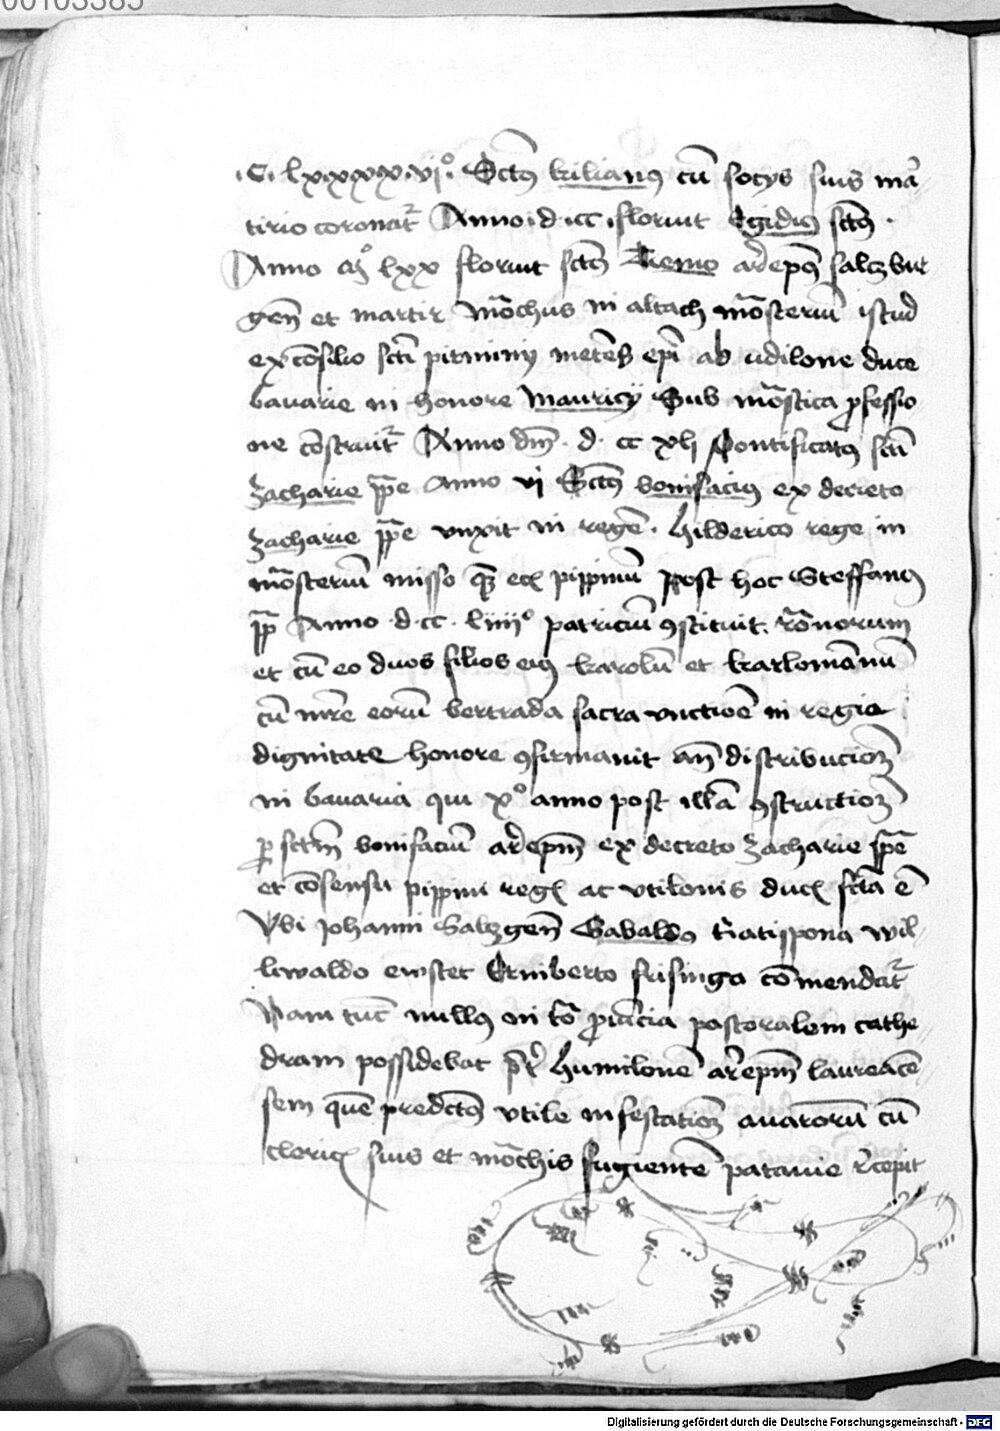 00103385
.C. lxxxxx.vjº. Sctus kilianus cū socys suis mar
tirio coronat̄ Anno .d.cc. floruit Egidius sctus .
Anno m̄ lxx floruit sctus Tiemo archiepus saltzbur
geñ et martir mōchus in altach mōsteriū istud
ex cōsilio scti pirminij meteñ epi ab udilone duce
bavarie in honore mauricij Sub mōstica professio
ne cōstruit̄ Anno dm̄ . d . cc xlj Pontificatus scti
zacharie p̄p̄e Anno vj Sctus bonifacius ex decreto
zacharie p̄p̄e vnxit in regē . hilderico rege in
mōsteriū misso pippinū Post hoc Steffanus
p̄p̄ Anno .d.cc. liiijº patriciū ꝯstituit. rōnorum
et cū eo duos filios eius karolū et karlomānū
cū mr̄e eorū bertrada sacra vnctiōe in regie
dignitate honore ꝯfirmauit añ distribucioēm
in bavaria qui xº anno post illā ꝯstructioēm
p sctm bonifaciū archiepm̄ ex decreto zacharie p̄p̄e
et cōsensu pippini regis ac vtilonis ducis fcta ē
Vbi Johanni Saltzgeñ Gabaldus Ratisspona wil-
libaldo einstet Ermberto frisinga cōmendat̄
Nam tūc nullus in tota prouīcia pastoralem cathe
dram possidebat pter humilonē archiepm̄ laureacē
sem quē predctus vtile infestatioēm auarorū cū
clericis suis et mōchis fugientē patauie recepit
Digitalisierung gefördert durch die Deutsche Forschungsgemeinschaft - DFG